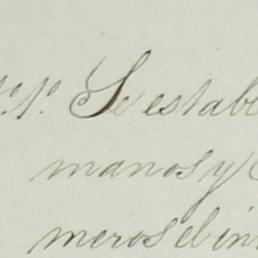 1º Se estable
manos y
meros el in